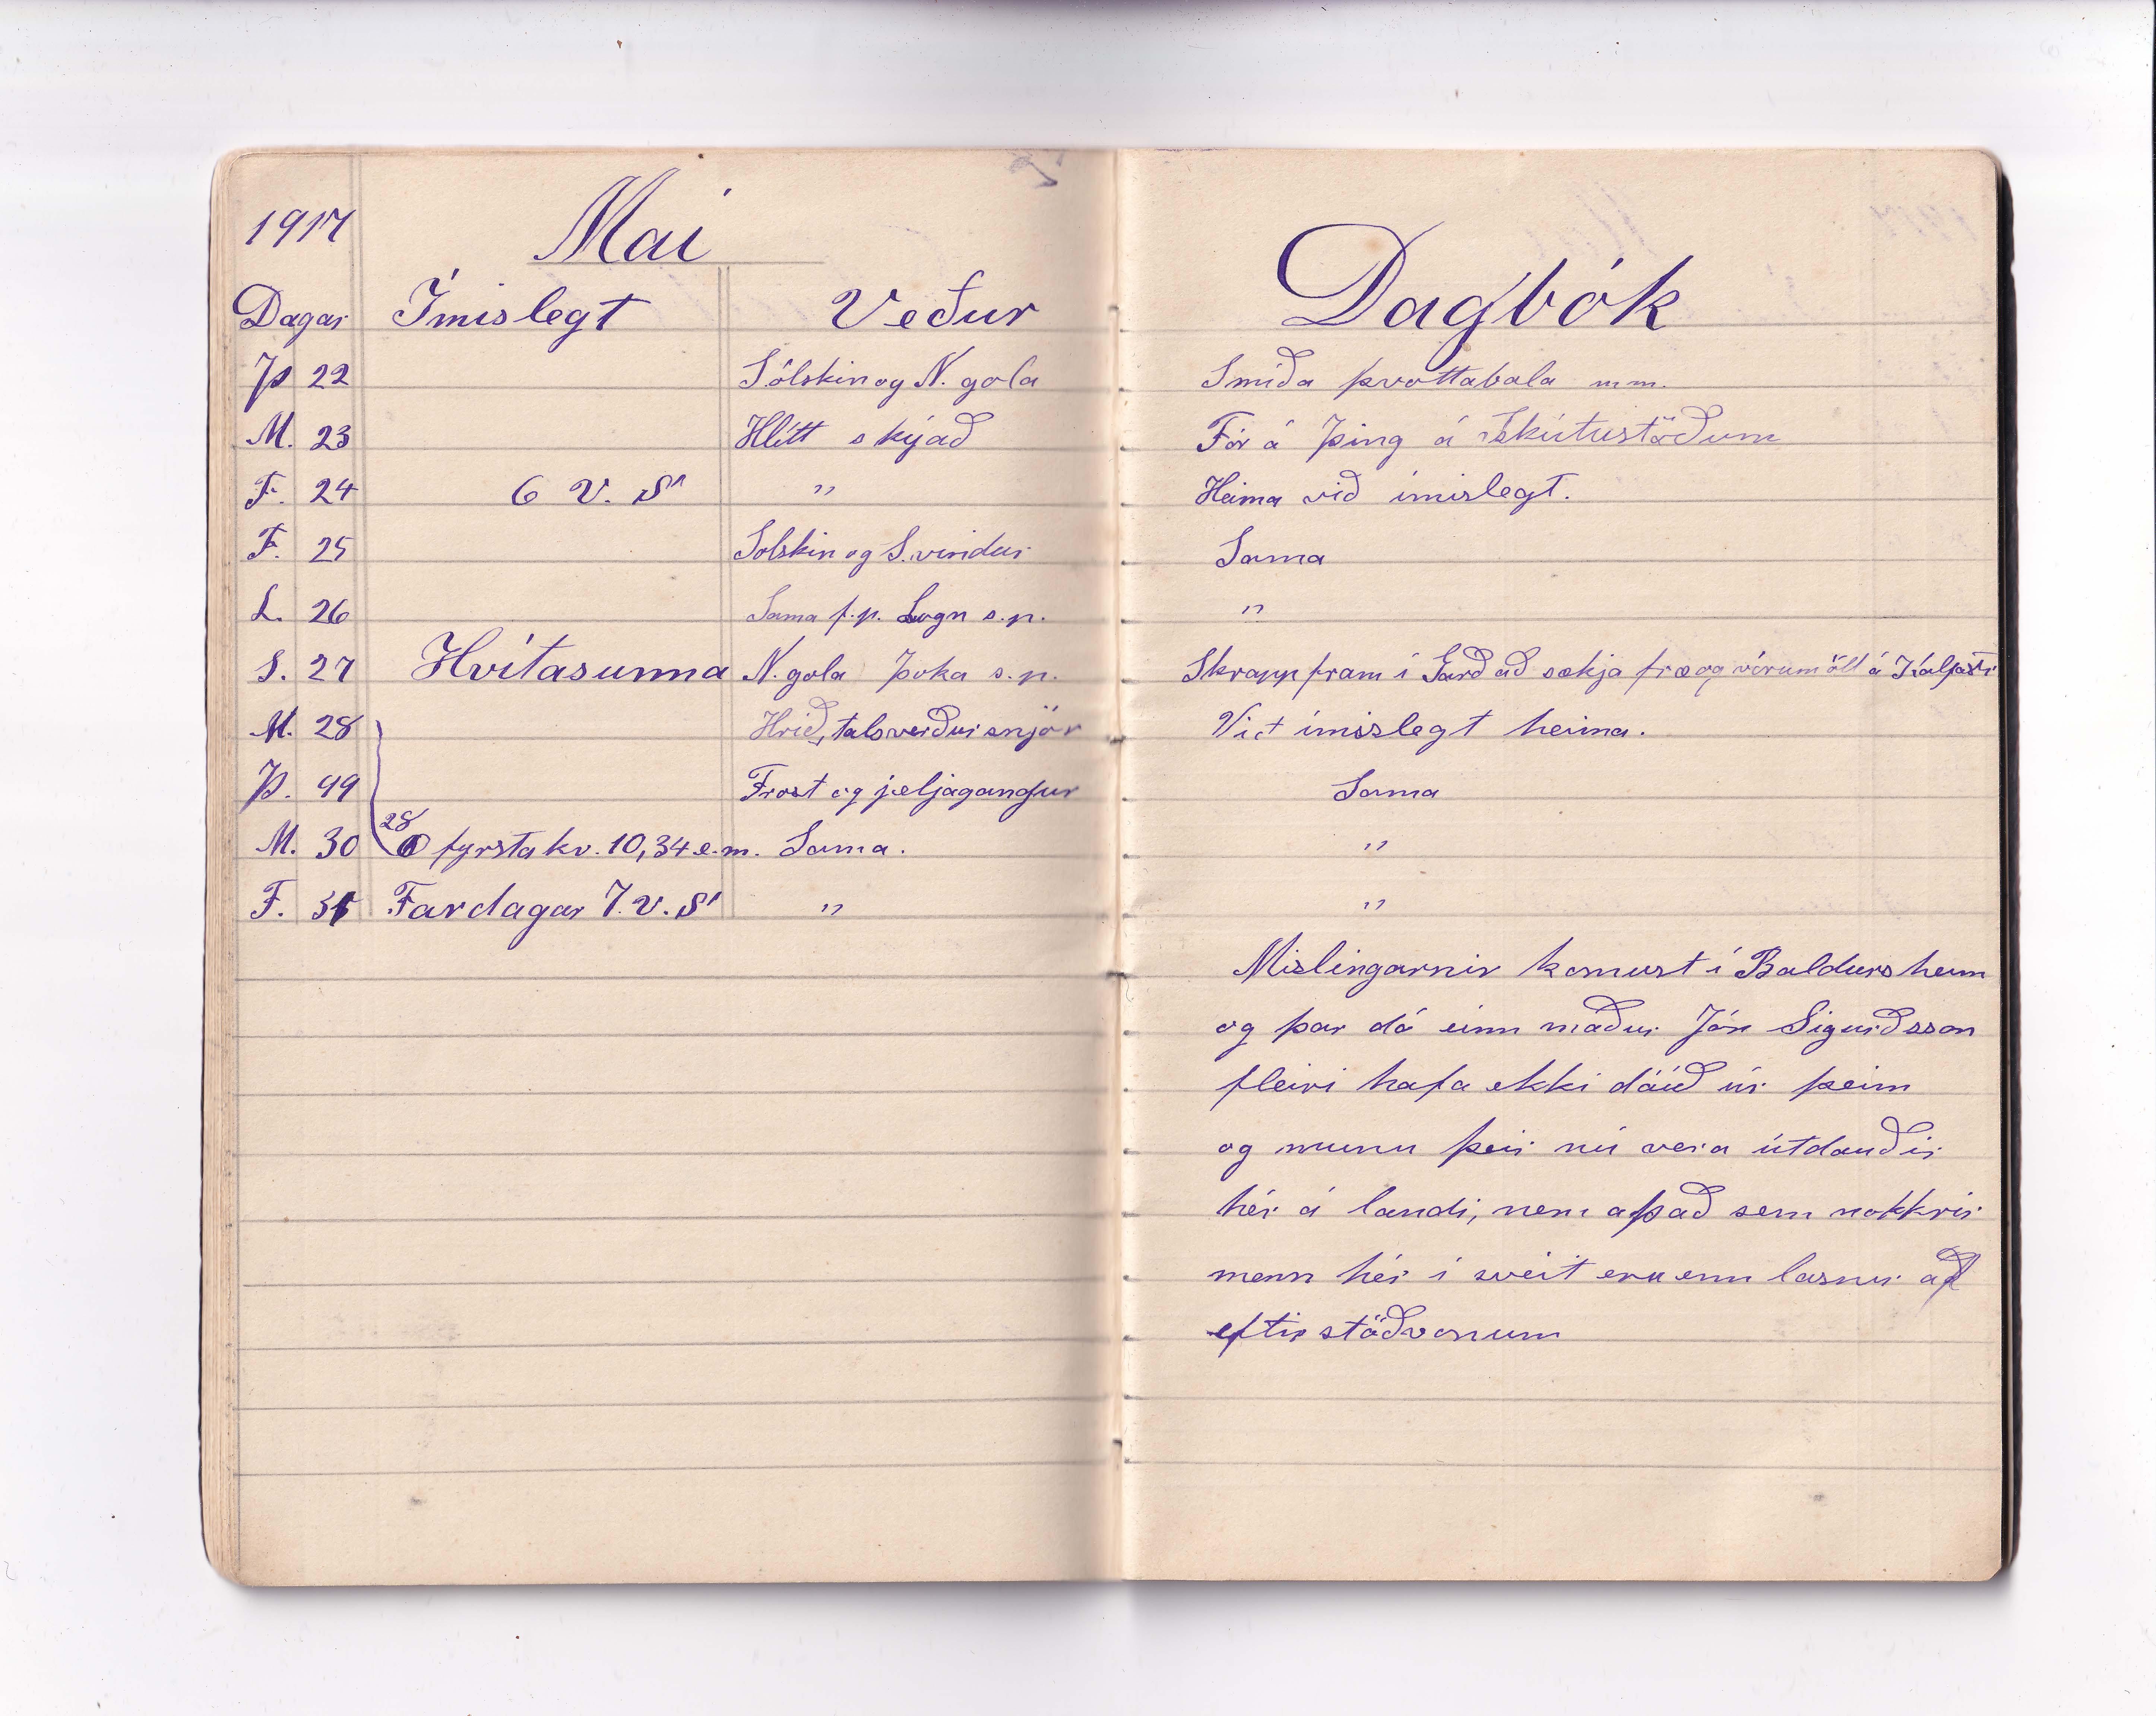 1917 Mai
Dagar Ímislegt Veður
Þ 22 Sólskin og N. gola
M. 23 Hlítt skýað
F. 24 6 V. S "
F. 25 Solskin og S. vindur
L. 26 Sama f.p. Logn s.p.
S. 27 Hvítasunna N. gola Þoka s.p.
M. 28 Hrið, talsverður snjór
Þ. 99 Frost og jeljagangur
28
M. 30 fyrsta kv. 10,34 e.m. Sama.
F. 31 Fardagar 7. v. S "
Dagbók
Smíða þvottabala m.m.
Fór á Þing á Skútustöðum
Heima við ímislegt.
Sama
"
Skrapp fram í Garð að sækja fræ og vórum öll á
Vit ímislegt heima.
Sama
"
"
Mislingarnir komust í Baldursheim
og þar dó einn maður Jón Sigurðsson
fleiri hafa ekki dáið úr þeim
og munu þeir nú vera útdauðir
hér á landi, nema það sem nokkrir
menn hér í sveit eru enn lasnir af
eftirstöðvonum